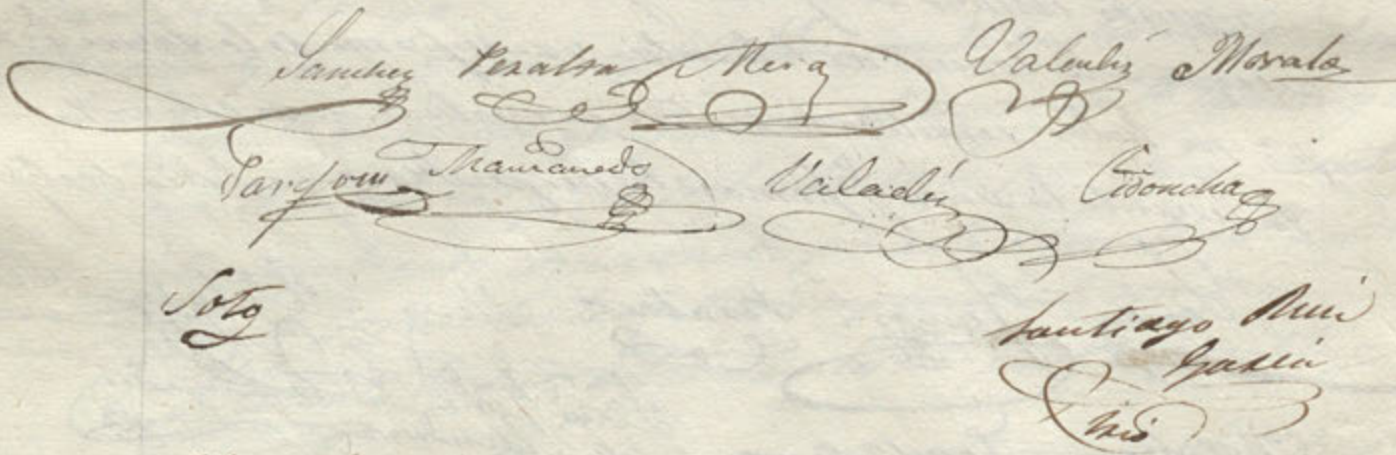 Sanchez Peralta Mera Valentin Morales
Manzanedo Valadés Cidoncha
Soto
Santiago Ruiz
Garcia
Srio